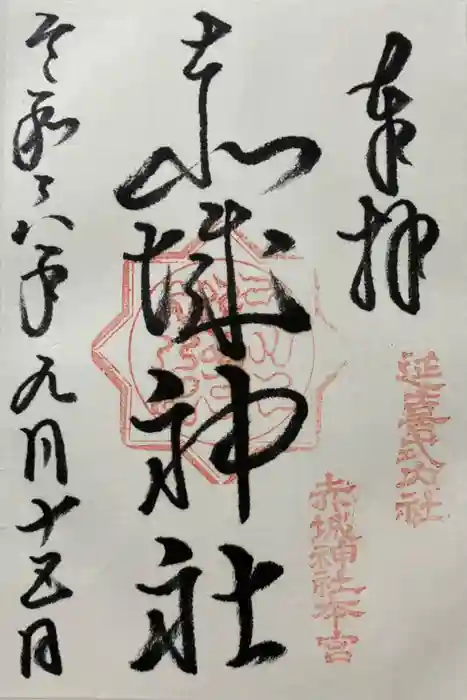 奉拝
延喜式内社
赤城神社
赤城神社本宮
令和六年九月十五日